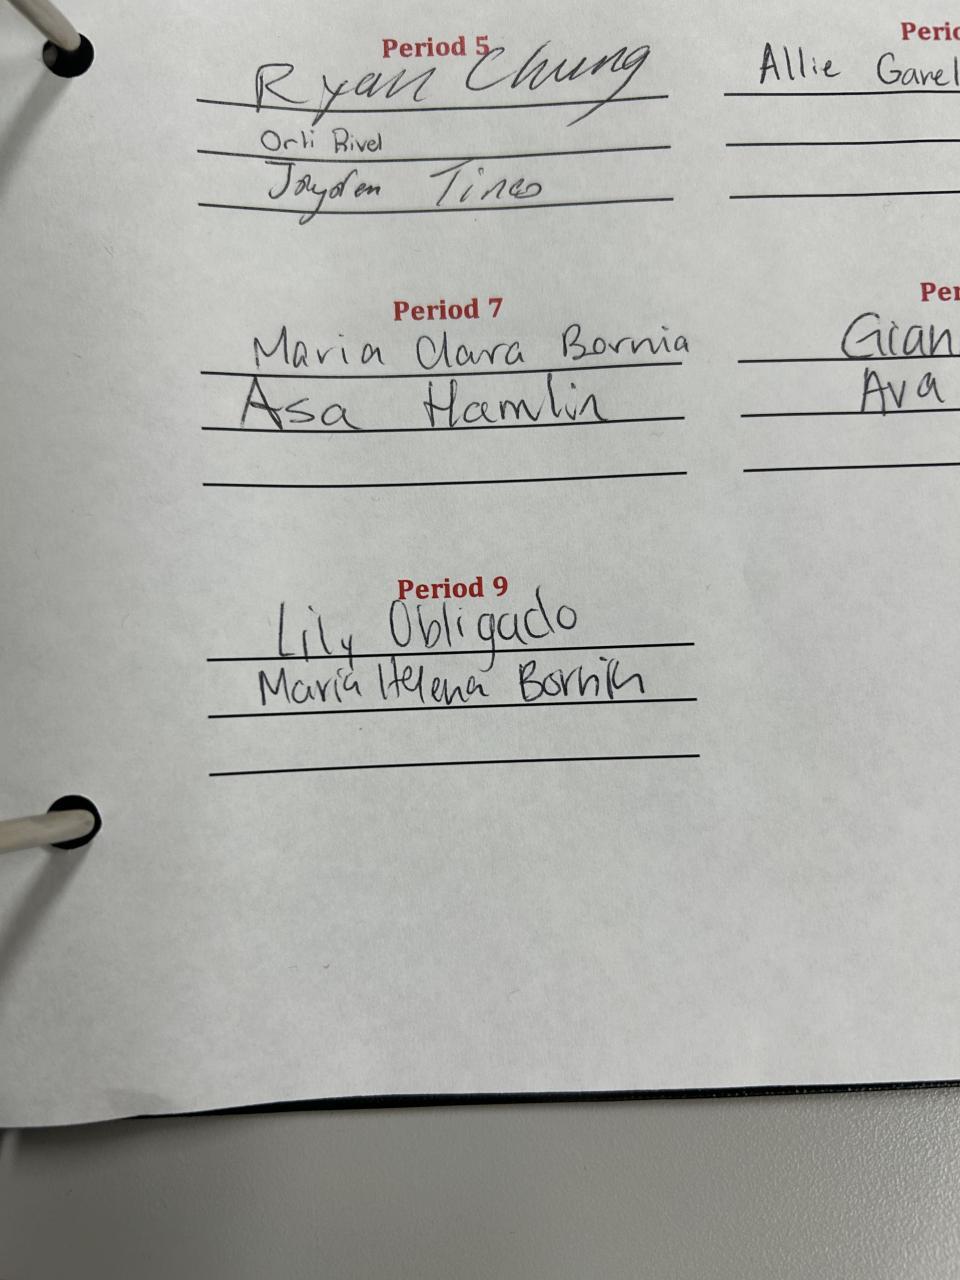 Period 5
Ryan Chung
Orli Rivel
Jayden Tineo
Perio
Allie Garel
Period 7
Maria Clara Bornia
Asa Hamlin
Per
Gian
Ava
Period 9
Lily Obligado
Maria Helena Bornia